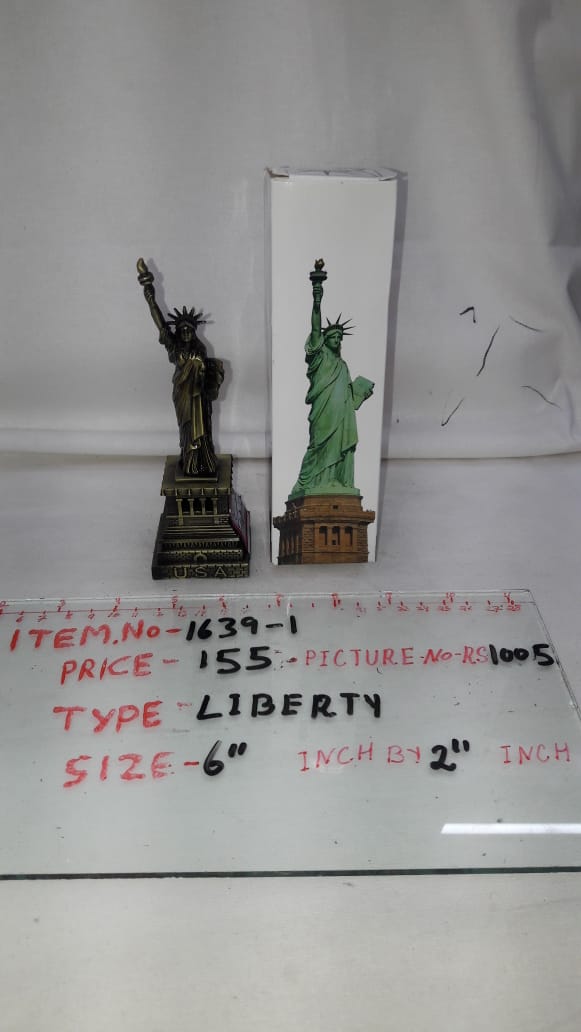 USA
ITEM.No-1639-1
PRICE- 155:- PICTURE-No-RS1005
TYPE-LIBERTY
SIZE-6" INCH BY 2" INCH